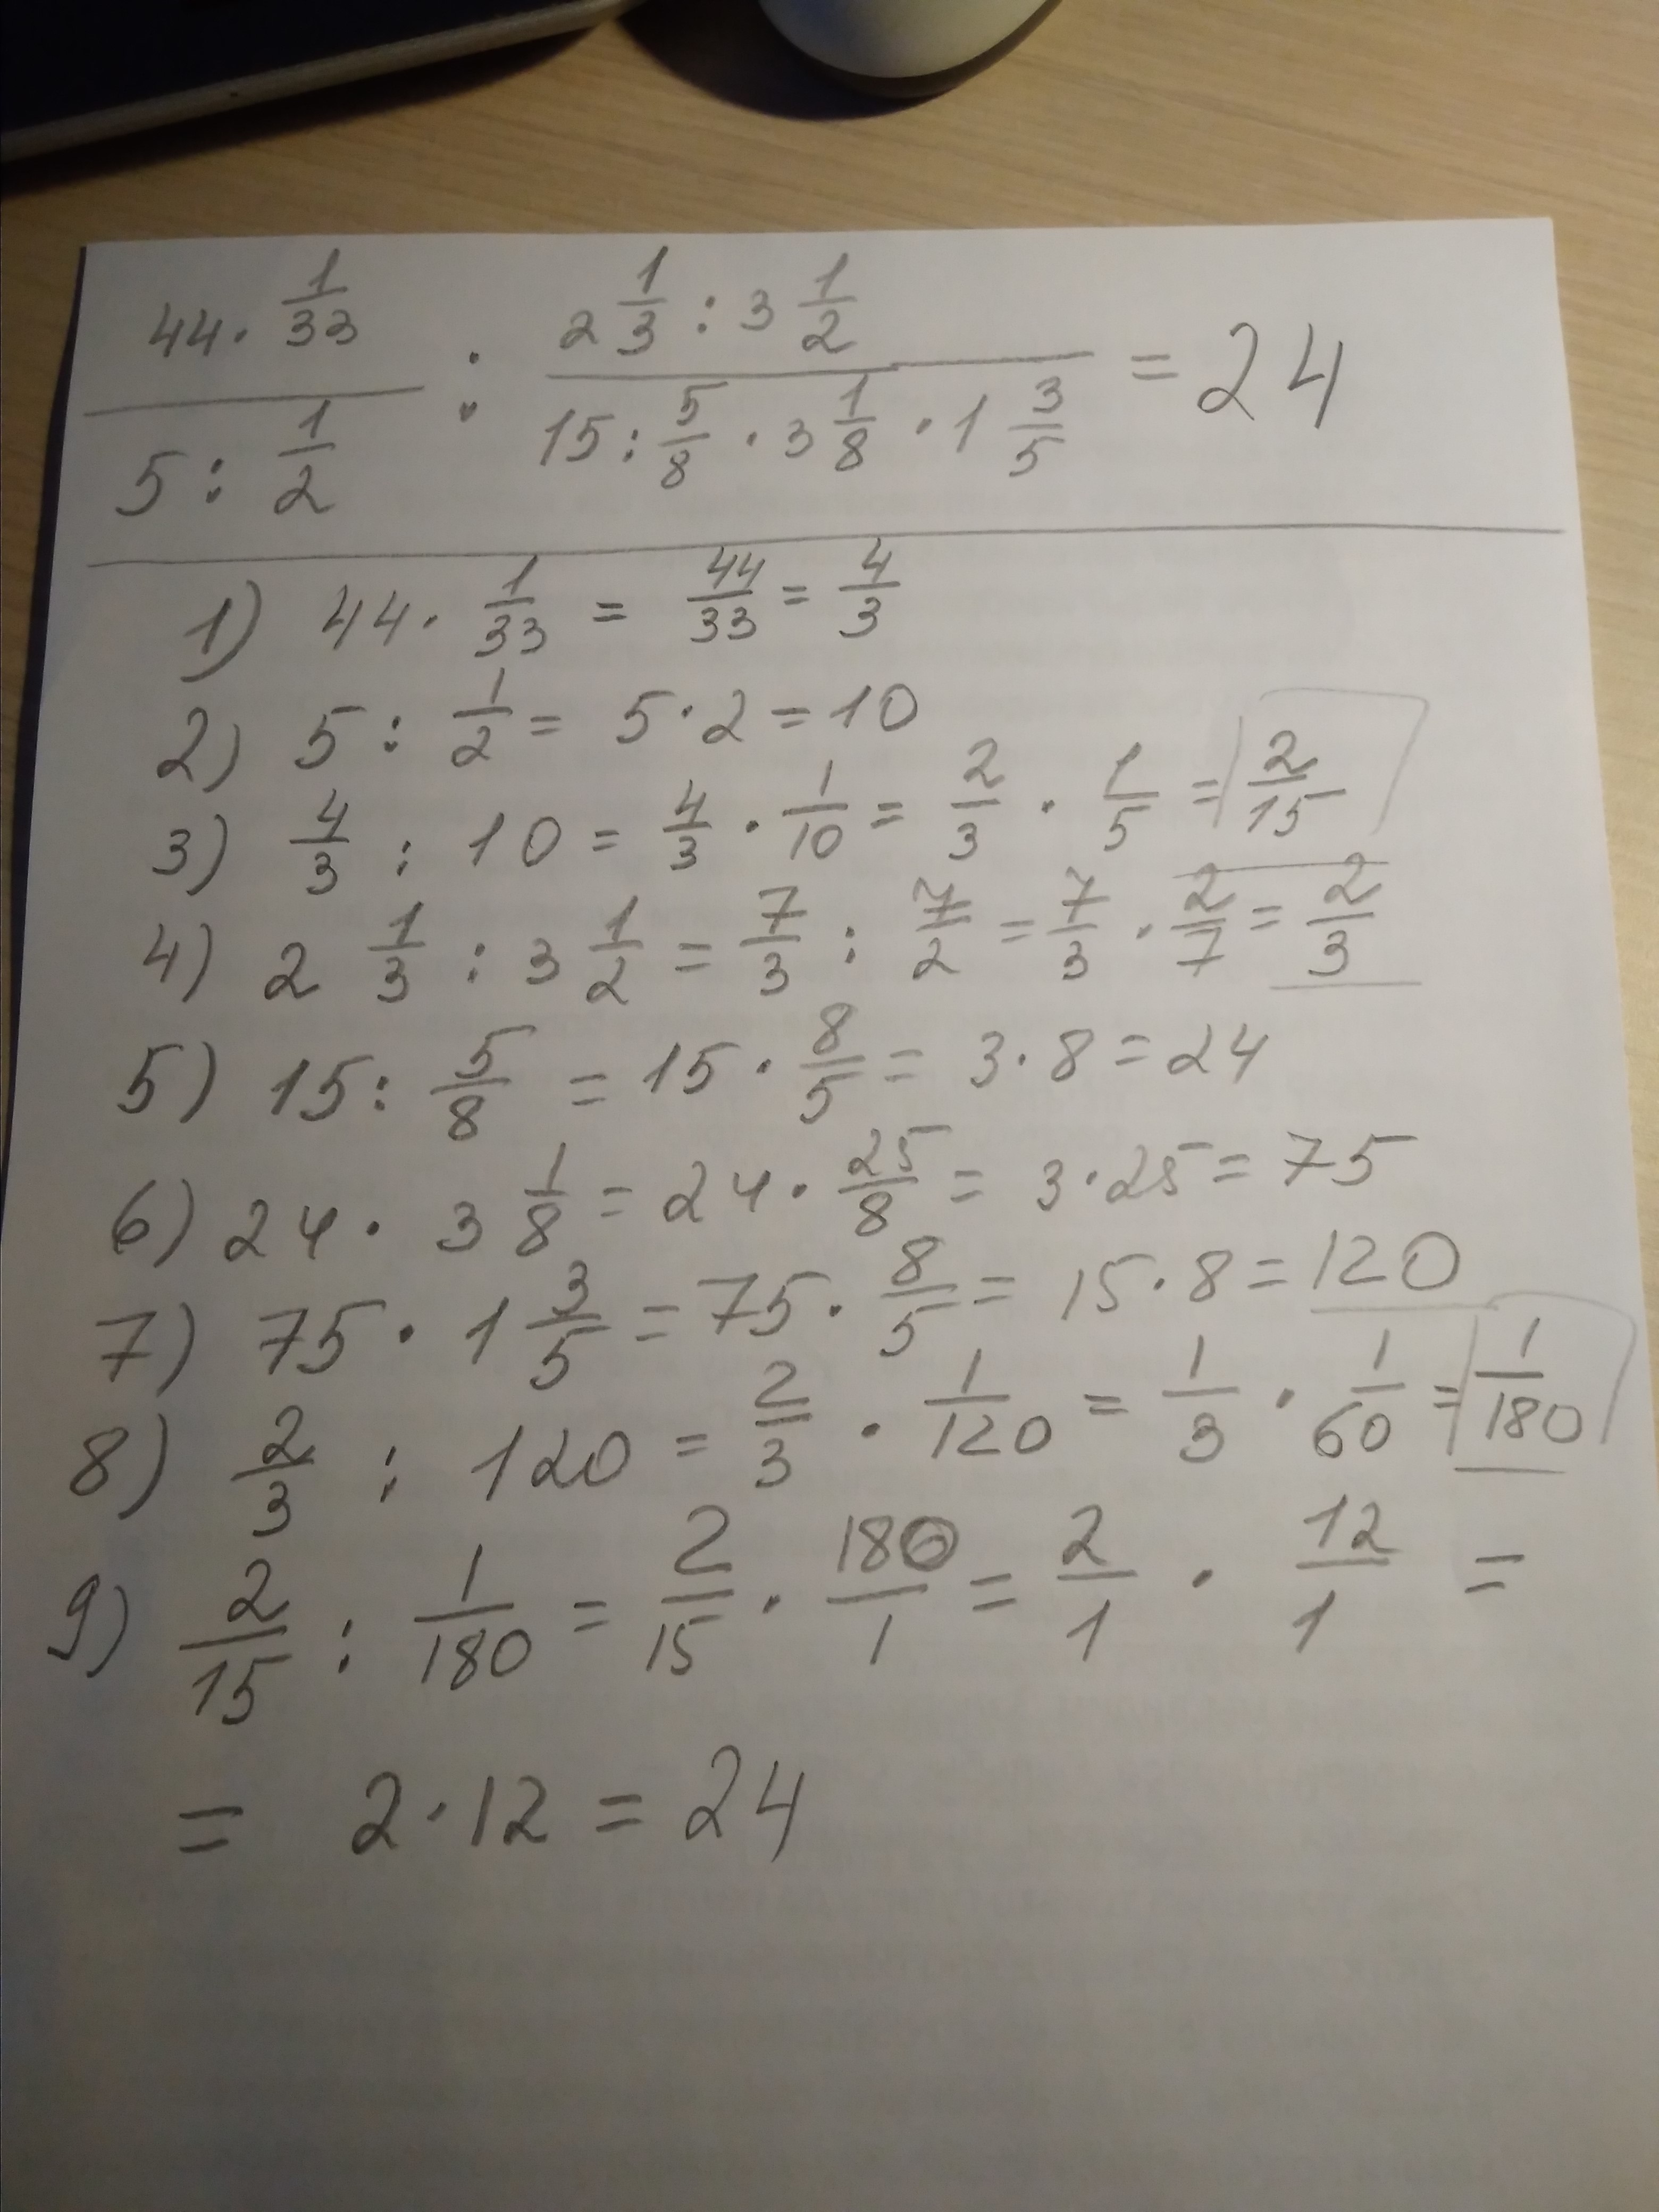 44 · 1/33 / 5 : 1/2 : 2 1/3 : 3 1/2 / 15 : 5/8 · 3 1/8 · 1 3/5 = 24
1) 44 · 1/33 = 44/33 = 4/3
2) 5 : 1/2 = 5 · 2 = 10
3) 4/3 : 10 = 4/3 · 1/10 = 2/3 · 1/5 = 2/15
4) 2 1/3 : 3 1/2 = 7/3 : 7/2 = 7/3 · 2/7 = 2/3
5) 15 : 5/8 = 15 · 8/5 = 3 · 8 = 24
6) 24 · 3 1/8 = 24 · 25/8 = 3 · 25 = 75
7) 75 · 1 3/5 = 75 · 8/5 = 15 · 8 = 120
8) 2/3 : 120 = 2/3 · 1/120 = 1/3 · 1/60 = 1/180
9) 2/15 : 1/180 = 2/15 · 180/1 = 2/1 · 12/1 =
= 2 · 12 = 24